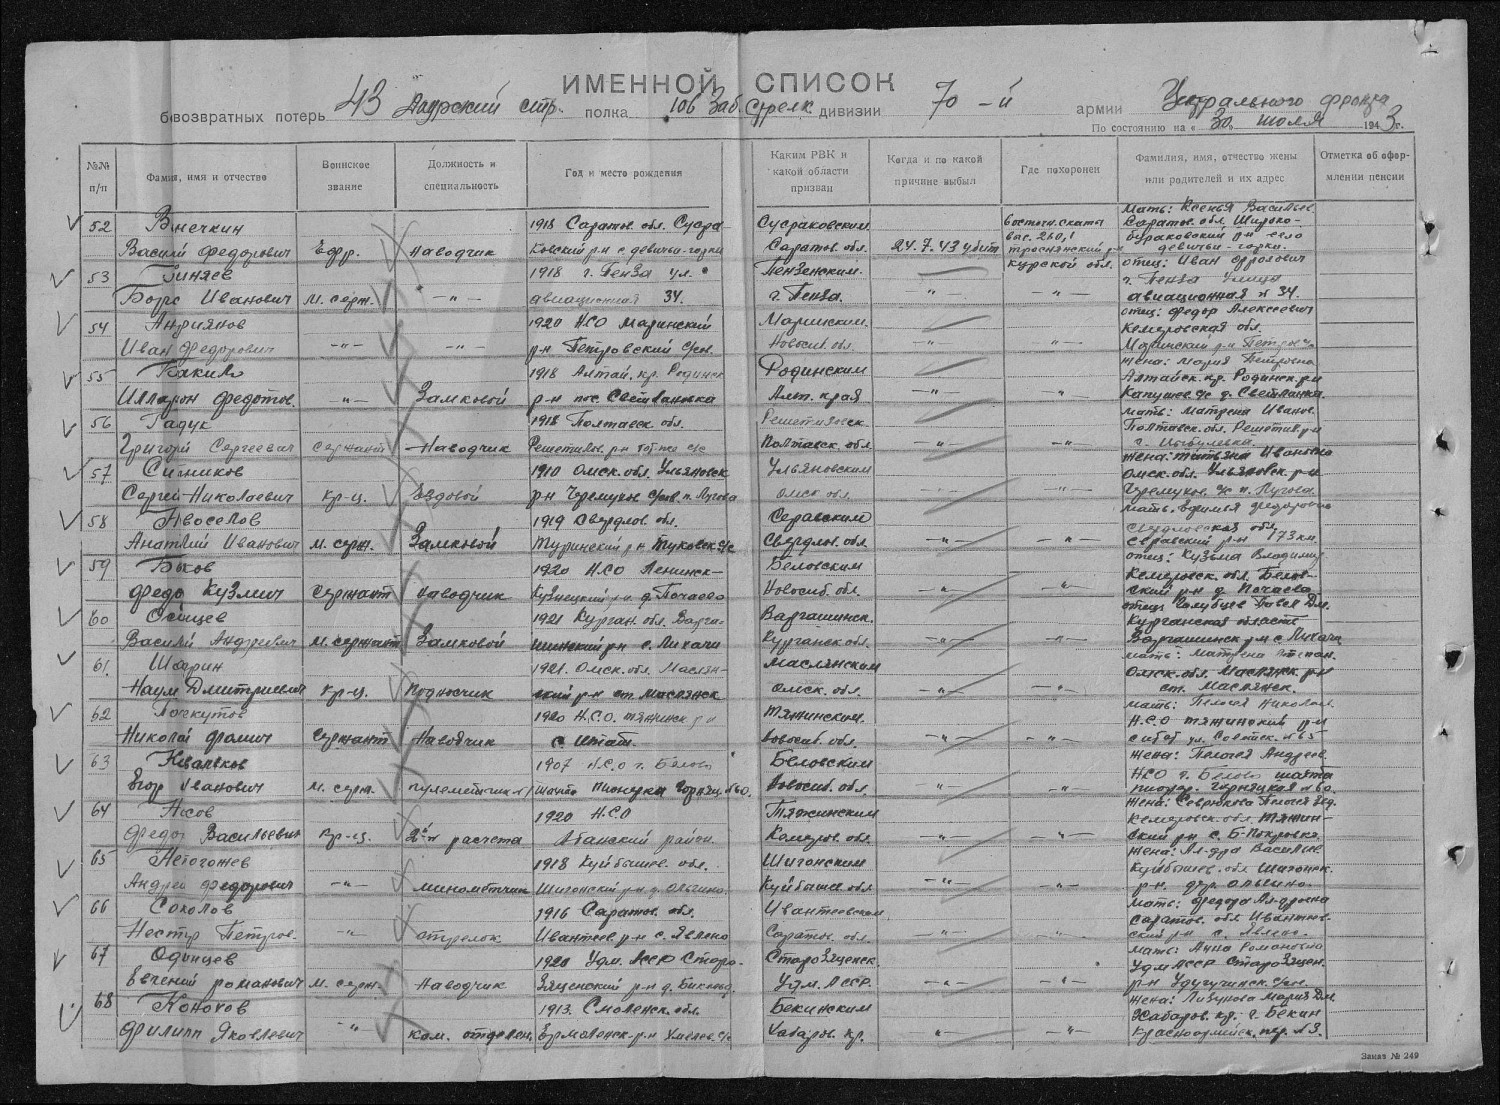 ИМЕННОЙ СПИСОК
безвозвратных потерь 43 Даурский стр. полка 106 Заб. Стрелк. дивизии 70-й армии Центрального фронта
По состоянию на «30» июля 1943 г.
№№ п/п Фамилия, имя и отчество Воинское звание Должность и специальность Год и место рождения Каким РВК и какой области призван Когда и по какой причине выбыл Где похоронен Фамилия, имя, отчество жены или родителей и их адрес Отметка об оформлении пенсии
52 Внечкин 1918 Саратов. обл. Сусра- Сусраковским Восточн. ската Мать: Ксенья Васильев. Саратов. обл. Широко-
Василий Федорович Ефр. Наводчик ковский р-н с. девичьи-горки Саратов. обл. 24.7.43 убит выс. 260,1 Курской обл. бураковский р-н село девичьи-горки.
53 1918 г. Пенза ул. Пензенским отец: Иван
Борис Иванович м. серж. -"- авиационная 34. г. Пенза. -"- -"- г. Пенза улица авиационная № 34.
54 Андриянов 1920 НСО Мариинский Мариинским отец: Федор Алексеевич
Иван Федорович -"- -"- р-н Петровский с/сов. Новосиб. обл. -"- -"- Кемеровская обл.
55 1918 Алтай. кр. Родинск. Родинским жена: Мария Петровна
Илларион Федотов. -"- Замковой р-н пос. Светлановка Алт. края -"- -"- Алтайск. кр. Родинск. р-н
56 Гадук 1918 Полтавск обл. Решетиловск. мать: Матрена Иванов.
Григорий Сергеевич сержант Наводчик Решетилов. р-н Полтавск обл. -"- -"- Полтавск. обл. Решетил. р-н
57 Ситников 1910 Омск. обл. Ульяновск Ульяновским жена: Татьяна Ивановна
Сергей Николаевич кр-ц. Ездовой р-н Черемухов. с/сов. п. Лугова Омск обл. -"- -"- Омск. обл. Ульяновск. р-н Черемухов. с/с п. Лугова
58 1919 Свердлов. обл. Серовским мать:
Анатолий Иванович м. серж. Замковой Туринский р-н Свердлов. обл. -"- -"- Свердловская обл. Серовский р-н 173 км.
59 Быков 1920 НСО Ленинск- Беловским отец: Кузьма Владимир.
Федор Кузмич Сержант Наводчик Кузнецкий р-н д. Почаево Новосиб. обл. -"- -"- Кемеровск. обл. Беловский р-н д. Почаево
60 1921 Курган. обл. Варга- Варгашинск. отец: Голубцев Павел Дм.
Василий Андреевич м. сержант Замковой шинский р-н с. Лихачи Курганск обл. -"- -"- Курганская область Варгашинск р-н с. Лихачи
61. 1921. Омск. обл. Маслян- Маслянским мать: Матрена Степан.
Наум Дмитриевич кр-ц. подносчик ский р-н ст. Маслянск Омск. обл. -"- -"- Омск. обл. Маслянск. р-н ст. Маслянск.
62 Лоскутов 1920 Н.С.О. Тяжинск р-н Тяжинским мать: Пелагея Николаев.
Николай Фомич Сержант Наводчик с. Итат. Новосиб. обл. -"- -"- Н.С.О Тяжинский р-н ул. Советск. №65
63 1907 Н.С.О г. Белово Беловским жена: Пелагея Андреев.
Егор Иванович м. серж. пулеметчик шахта Пионерка Горняц. №60. Новосиб. обл. -"- -"- НСО г. Белово шахта пионер. Горняцкая №60.
64 Носов 1920 НСО Тяжинским жена: Севрюкова Пелагея Фед.
Федор Васильевич кр-ц. 2-й н расчета Абанский район. Кемеров. обл. -"- -"- Кемеровск. обл. Тяжинский р-н с. Б-Покровка
65 Непогожев 1918 Куйбышев. обл. Шигонским жена: Ал-дра Василье
Андрей Федорович -"- минометчик Шигонский р-н д. Ольгино. Куйбышев. обл -"- -"- Куйбышев. обл Шигонск. р-н. дер. Ольгино.
66 Соколов 1916 Саратов. обл. Ивантеевским мать: Федора Ал-дровна
Нестор Петров. -"- стрелок Ивантеев. р-н с. Яблоно Саратов. обл. -"- -"- Саратов. обл. Ивантеевский р-н с.
67 Одинцев 1920 Удм. АССР Старо- СтароЗяценск. мать: Анна Романовна
Евгений Романович м. серж. Наводчик Зяценский р-н д. Удм. АССР. -"- -"- Удм АССР СтароЗяцен. р-н
68 Конохов 1913. Смоленск. обл. Бекинским жена: Лизунова Мария Дм.
Филипп Яковлевич -"- ком. отделен. Ермоленск. р-н Хмелев. с/с Хабаров. кр. -"- -"- Хабаров. кр. г. Бекин Красноармейск. пер. №3.
Заказ № 249